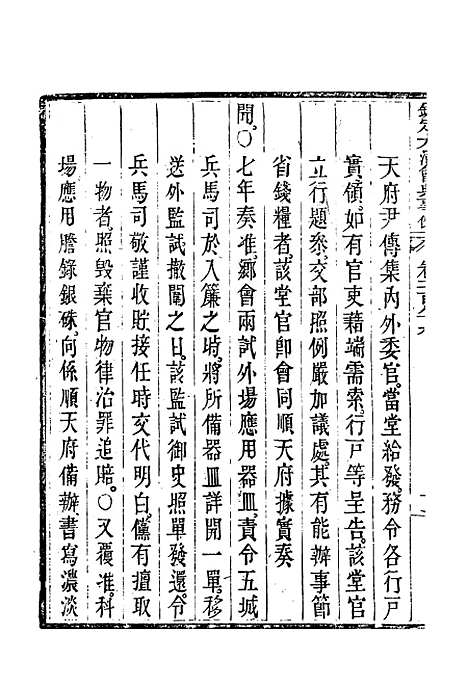 天府尹傳集內外委官。當堂給發。務令各行戶
實領。如有官吏藉端需索。行戶等呈告。該堂官
立行題參。交部照例嚴加議處。其有能辦事節
省錢糧者。該堂官卽會同順天府據實奏
聞。○七年奏准。鄉會兩試外場應用器皿。責令五城
兵馬司於入簾之時。將所備器皿詳開一單。移
送外監試。撤闈之日。該監試御史照單發還。令
兵馬司敬謹收貯。接任時交代明白。儻有擅取
一物者。照毀棄官物律治罪追賠。○又覆准。科
場應用謄錄銀硃。向係順天府備辦。書寫濃淡